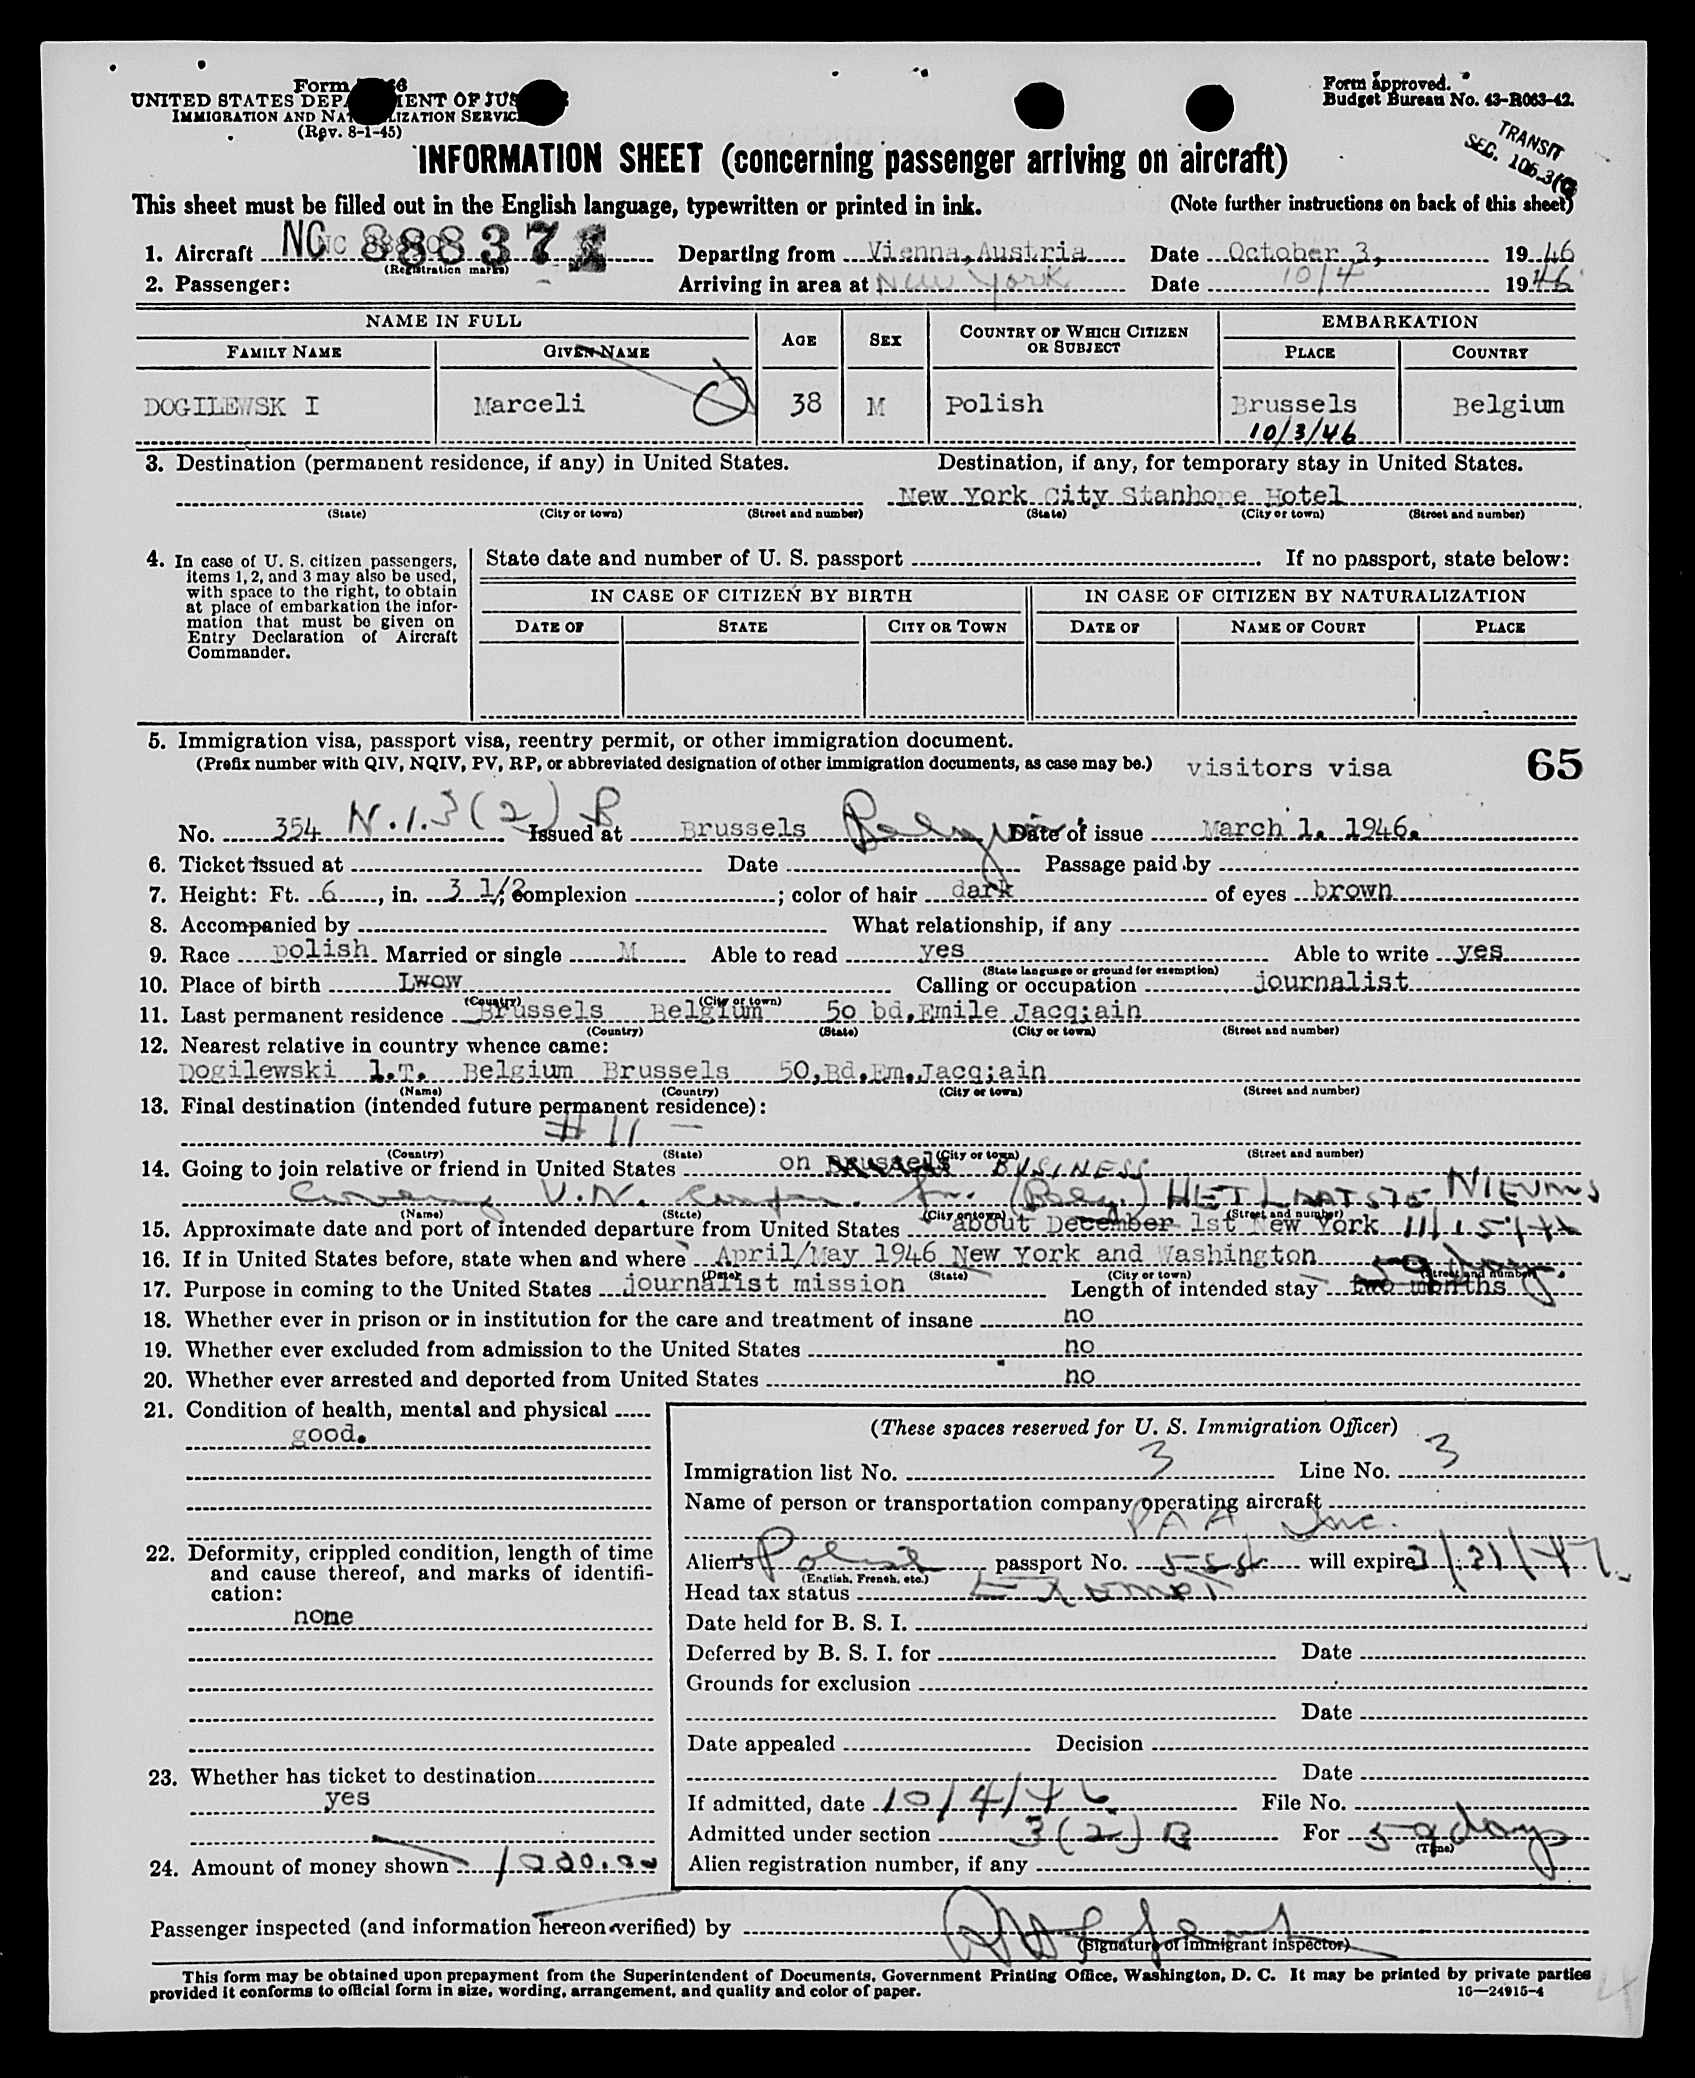 Form
UNITED STATES DEPARTMENT OF JUSTICE
IMMIGRATION AND NATURALIZATION SERVICE
(Rev. 8-1-45)
Form approved.
Budget Bureau No. 43-R063-42.
TRANSIT
SEC. 106.3(
INFORMATION SHEET (concerning passenger arriving on aircraft)
This sheet must be filled out in the English language, typewritten or printed in ink. (Note further instructions on back of this sheet)
1. Aircraft NC 88837 Departing from Vienna, Austria Date October 3, 1946
(Registration marks)
2. Passenger: Arriving in area at New York Date 10/4 1946
NAME IN FULL
FAMILY NAME GIVEN NAME AGE SEX COUNTRY OF WHICH CITIZEN OR SUBJECT EMBARKATION
PLACE COUNTRY
DOGILEWSK I Marceli 38 M Polish Brussels Belgium
10/3/46
3. Destination (permanent residence, if any) in United States. Destination, if any, for temporary stay in United States.
New York City Stanhope Hotel
(State) (City or town) (Street and number) (State) (City or town) (Street and number)
4. In case of U. S. citizen passengers, items 1, 2, and 3 may also be used, with space to the right, to obtain at place of embarkation the information that must be given on Entry Declaration of Aircraft Commander.
State date and number of U. S. passport If no passport, state below:
IN CASE OF CITIZEN BY BIRTH IN CASE OF CITIZEN BY NATURALIZATION
DATE OF STATE CITY OR TOWN DATE OF NAME OF COURT PLACE
5. Immigration visa, passport visa, reentry permit, or other immigration document.
(Prefix number with QIV, NQIV, PV, RP, or abbreviated designation of other immigration documents, as case may be.) visitors visa 65
No. 354 N.I. 3(2) B Issued at Brussels Belgium Date of issue March 1. 1946.
6. Ticket issued at Date Passage paid by
7. Height: Ft. 6, in. 3 1/2; complexion ; color of hair dark of eyes brown
8. Accompanied by What relationship, if any
9. Race polish Married or single M Able to read yes Able to write yes
(State language or ground for exemption)
10. Place of birth Lwow Calling or occupation journalist
(Country) (City or town)
11. Last permanent residence Brussels Belgium 50 bd.Emile Jacq;ain
(Country) (State) (City or town) (Street and number)
12. Nearest relative in country whence came:
Dogilewski l.T. Belgium Brussels 50,Bd.Em.Jacq;ain
(Name) (Country) (City or town) (Street and number)
13. Final destination (intended future permanent residence):
# 11 —
(Country) (State) (City or town) (Street and number)
14. Going to join relative or friend in United States on Brussels BUSINESS
Covering U.N. for (Belg.) HET LAATSTE NIEUWS
(Name) (State) (City or town) (Street and number)
15. Approximate date and port of intended departure from United States about December 1st New York
16. If in United States before, state when and where April/May 1946 New York and Washington
(Date) (State) (City or town) (Street and number)
17. Purpose in coming to the United States journalist mission Length of intended stay two months 59 days
18. Whether ever in prison or in institution for the care and treatment of insane no
19. Whether ever excluded from admission to the United States no
20. Whether ever arrested and deported from United States no
21. Condition of health, mental and physical
good.
22. Deformity, crippled condition, length of time and cause thereof, and marks of identification:
none
23. Whether has ticket to destination
yes
24. Amount of money shown 1000.00
(These spaces reserved for U. S. Immigration Officer)
Immigration list No. 3 Line No. 3
Name of person or transportation company operating aircraft
PAA, Inc.
Alien's Polish passport No. will expire 3/21/47.
(English, French, etc.)
Head tax status Exempt
Date held for B. S. I.
Deferred by B. S. I. for Date
Grounds for exclusion
Date
Date appealed Decision
Date
If admitted, date 10/4/46 File No.
Admitted under section 3(2) B For 59 days
(Time)
Alien registration number, if any
Passenger inspected (and information hereon verified) by
(Signature of immigrant inspector)
This form may be obtained upon prepayment from the Superintendent of Documents, Government Printing Office, Washington, D. C. It may be printed by private parties
provided it conforms to official form in size, wording, arrangement, and quality and color of paper. 16—24915-4
4